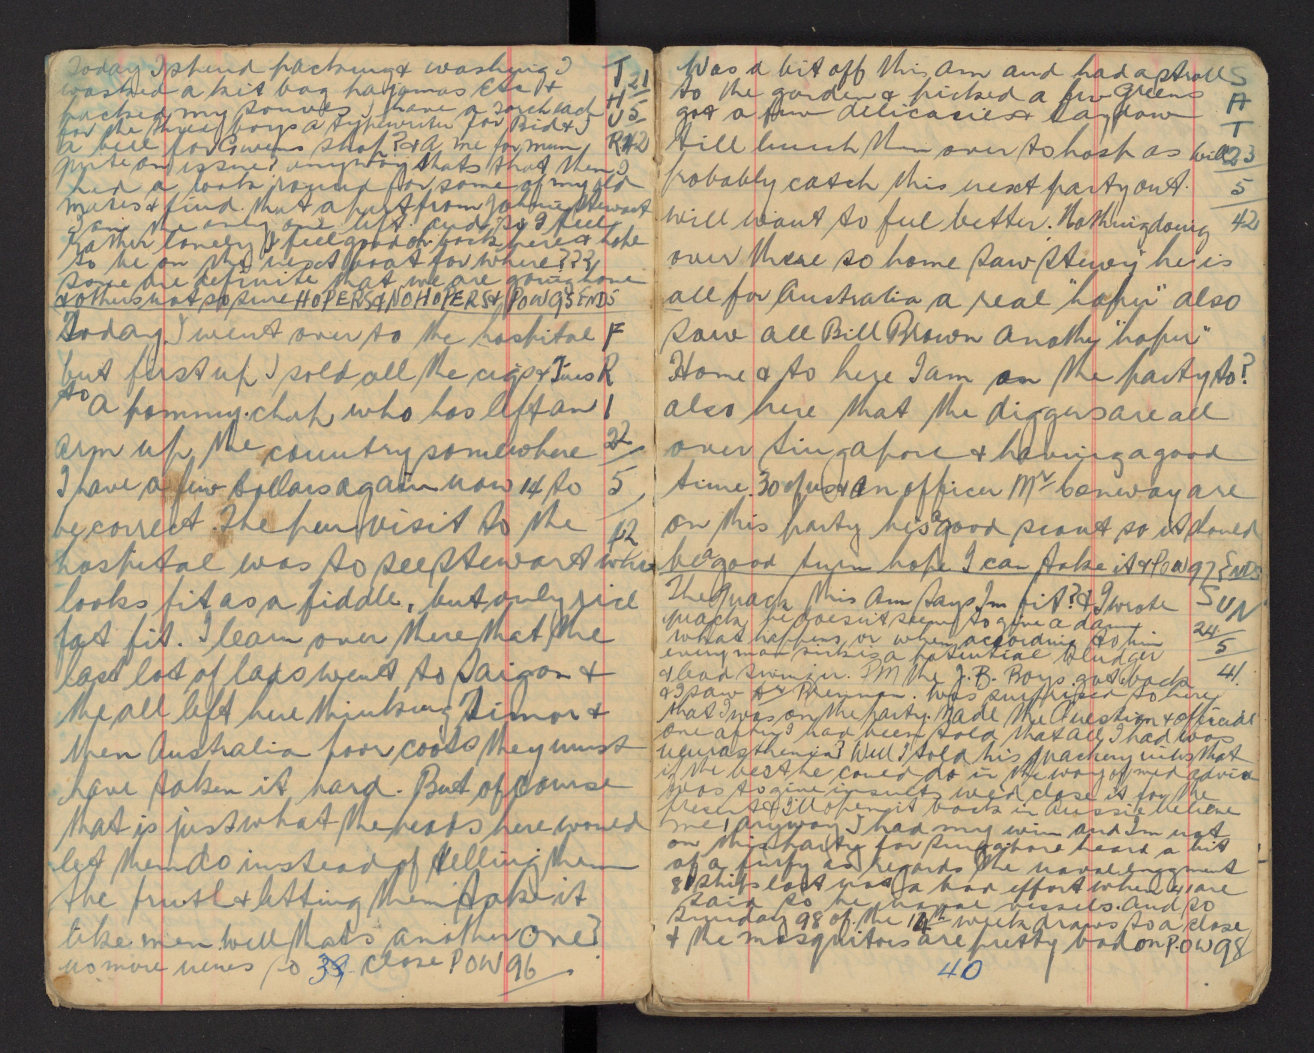 Today I spend packing & washing I
washed a kit bag haramas Etc. &
packed my souvies I have a torch each
for the three boys a typewriter for Bid & I
a bell for Gwens shop? & a me for mum
pure on issue? anyway thats that then I
had a look round for some of my old
mates & find that apart from Johnny Stewart
I am the only one left and so I feel
rather lonely I feel good on back here & hope
to be on the next boat for where???
some are definite that we are going home
& others not so sure HOPERS & NOHOPERS & POW 95 ENDS
T H U R 21/5/42
Today I went over to the hospital
but first up I sold all the cigs & Tins
to a pommy chap who has left an
arm up the country somewhere
I have a few dollars again now 14 to
be correct. The per visit to the
hospital was to see Stewart who
looks fit as a fiddle, but only rice
fat fit. I learn over there that the
last lot of lads went to Saigon &
the all left here thinking Timor &
then Australia poor coots they must
have taken it hard. But of course
that is just what the heads here would
let them do instead of telling them
the truth & letting them take it
like men well thats another one?
no more news so close POW 96
F R I 22/5/42
39
Was a bit off this am and had a stroll
to the garden & picked a few greens
got a few delicacies & lay down
till lunch then over to hosp as will
probably catch this next party out.
will want to feel better. Nothing doing
over there so home saw Stewy he is
all for Australia a real "hoper" also
saw all Bill Brown another "hoper"
Home & to here I am on the party to?
also here that the diggers are all
over Singapore & having a good
time. 30 of us & an officer Mr Conway are
on this party he's good scout so it should
be a good turn hope I can take it & POW 97 ENDS
S A T 23/5/42
The quack this am says Im fit? & I wrote
quack he doesn't seem to give a damn
what happens or when according to him
every man sick is a potential bludger
& lead swinger. PM the J.B. Boys got back
& I saw Dr Brennan. Was surprised to here
that I was on the party. Made the Question & official
one after I had been told that all I had was
neurasthenia? Well I told his quackery this that
if the best he could do in the way of med advice
was to give insults we'd close it for the
present & I'll open it back in Aussie believe
me! anyway I had my win and Im not
on this party for Singapore heard a bit
of a furfy as regards the naval engagment
81 ships lost not a bad effort when they are
said to be naval vessels. And so
Sunday 98 of the 14th week draws to a close
& the mosquitoes are pretty bad on POW 98
SUN 24/5/41.
40